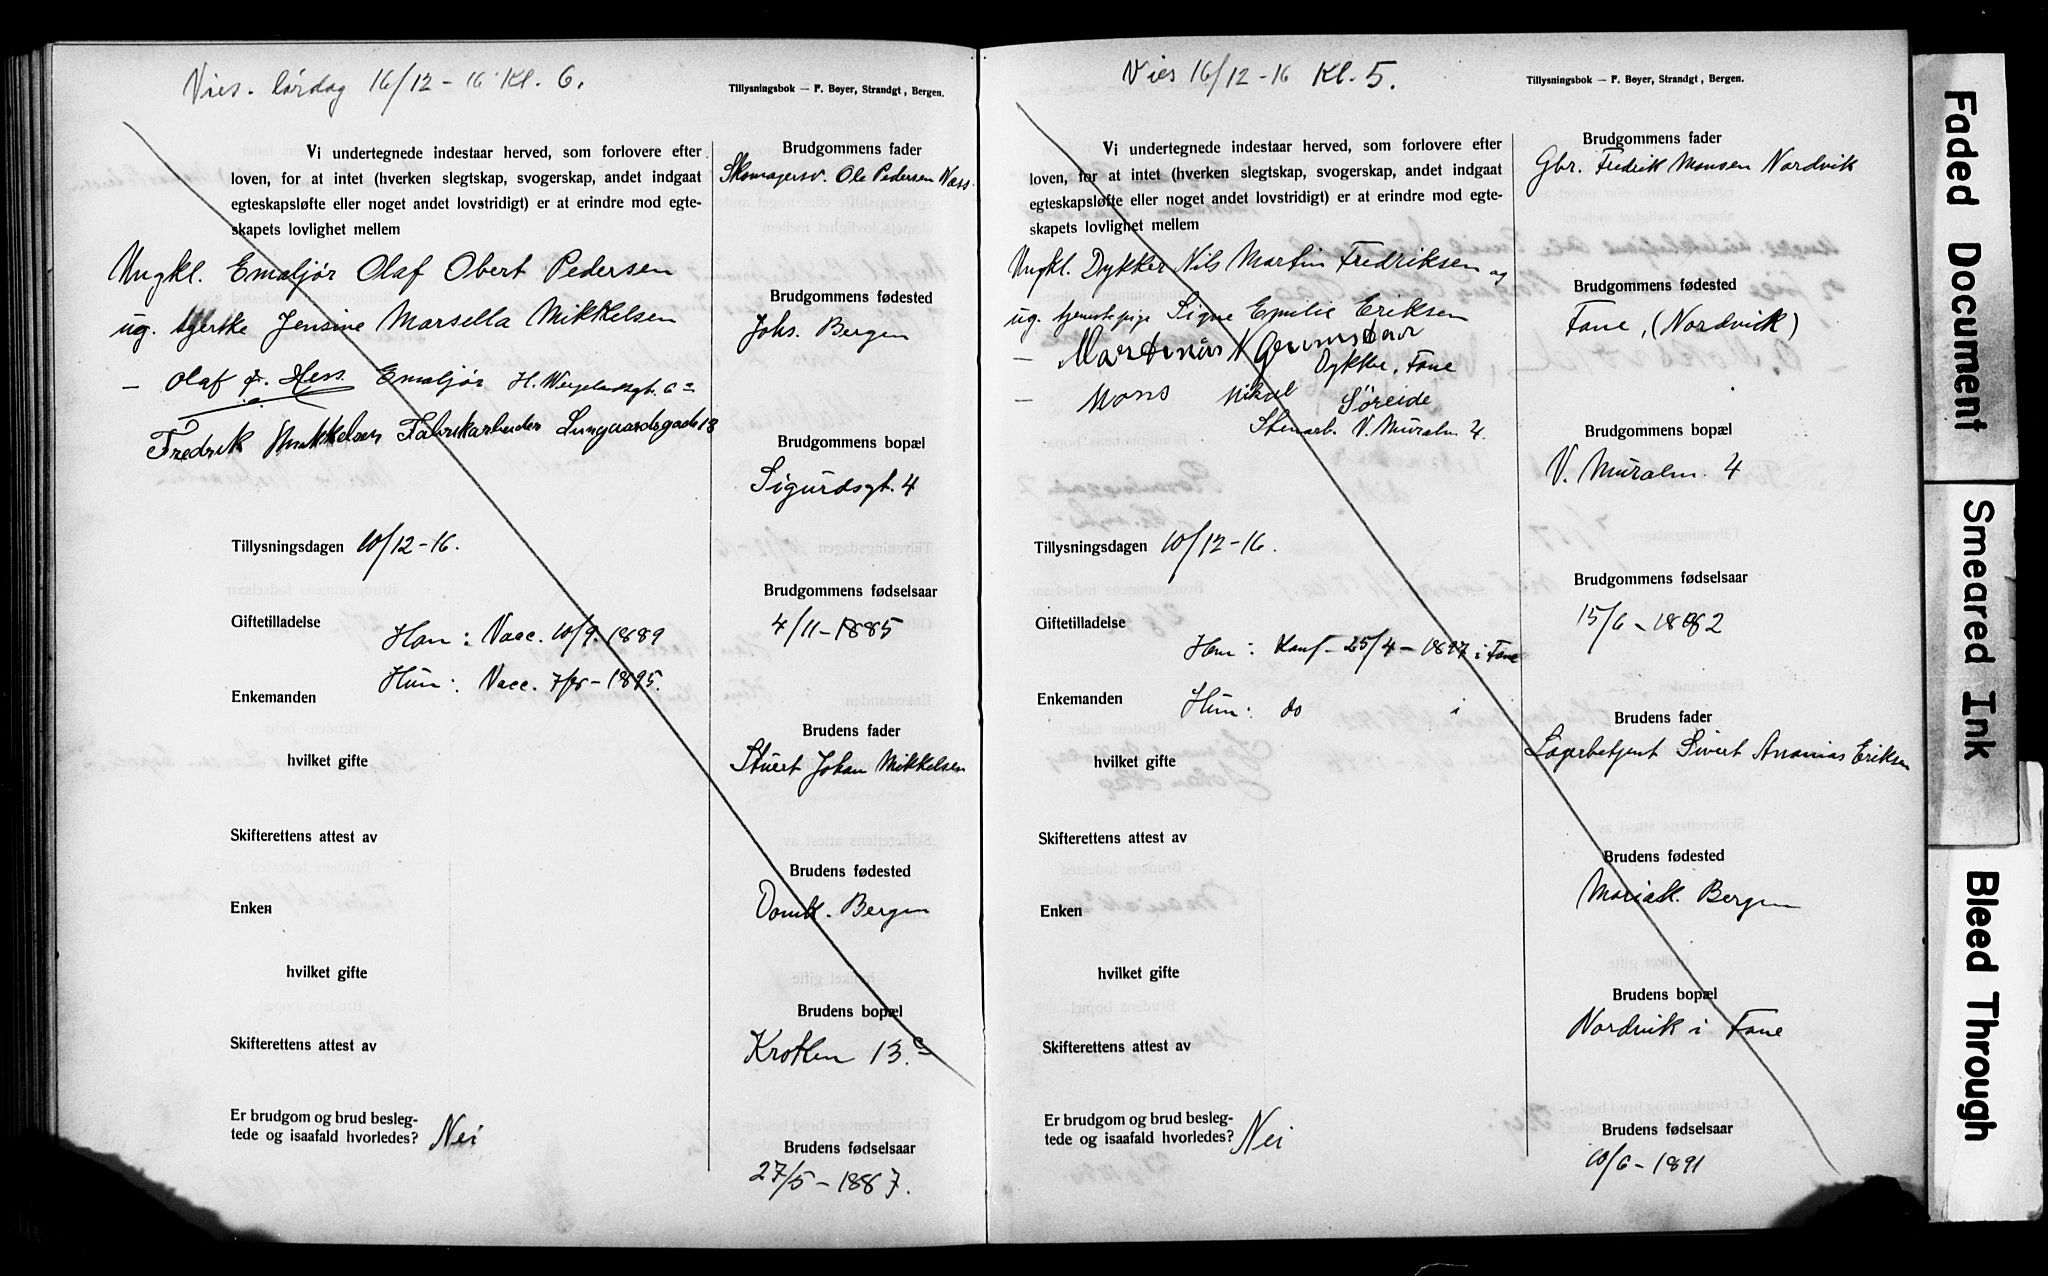 Vies. lørdag 16/12 - 16 Kl. 6.
Tillysningsbok — F. Bøyer, Strandgt, Bergen.
Vi undertegnede indestaar herved, som forlovere efter
loven, for at intet (hverken slegtskap, svogerskap, andet indgaat
egteskapsløfte eller noget andet lovstridigt) er at erindre mod egte-
skapets lovlighet mellem
Ungkl. Emaljør Olaf Obert Pedersen
ug. Jensine Marsella Mikkelsen
— Olaf Hess. Emaljør H. Wergelandsgt. 6a
Fredrik Mikkelsen Fabrikarbeider Lungaardsgade 13
Tillysningsdagen 10/12-16.
Giftetilladelse
Han: Vacc. 10/9. 1889
Hun: Vacc. 7/8-1895.
Enkemanden
hvilket gifte
Skifterettens attest av
Enken
hvilket gifte
Skifterettens attest av
Er brudgom og brud besleg-
tede og isaafald hvorledes? Nei
Brudgommens fader
Skomagersv. Ole Pedersen Næss
Brudgommens fødested
Johs. Bergen
Brudgommens bopæl
Sigurdsgt. 4
Brudgommens fødselsaar
4/11-1885
Brudens fader
Stuert Johan Mikkelsen
Brudens fødested
Domk. Bergen
Brudens bopæl
Krohen 13c
Brudens fødselsaar
27/5-1887.
Vies 16/12-16 Kl. 5.
Tillysningsbok — F. Bøyer, Strandgt, Bergen.
Vi undertegnede indestaar herved, som forlovere efter
loven, for at intet (hverken slegtskap, svogerskap, andet indgaat
egteskapsløfte eller noget andet lovstridigt) er at erindre mod egte-
skapets lovlighet mellem
Ungkl. Dykker Nils Martin Fredriksen og
ug. tjenestepige Signe Emilie Eriksen
— N Grimstad
Dykker, Fane
— Mons Nikal Søreide
Stenarb. V. Muralm. 4.
Tillysningsdagen 10/12-16.
Giftetilladelse
Han: Konf. 25/4-1897 i Fane
Enkemanden
Hun: do i
hvilket gifte
Skifterettens attest av
Enken
hvilket gifte
Skifterettens attest av
Er brudgom og brud besleg-
tede og isaafald hvorledes? Nei
Brudgommens fader
Gbr. Fredrik Monsen Nordvik
Brudgommens fødested
Fane, (Nordvik)
Brudgommens bopæl
V. Muralm. 4
Brudgommens fødselsaar
15/6-1882
Brudens fader
Lagerbetjent Sivert Ananias Eriksen
Brudens fødested
Mariak. Bergen
Brudens bopæl
Nordvik i Fane
Brudens fødselsaar
10/6-1891
Faded Document
Smeared Ink
Bleed Through